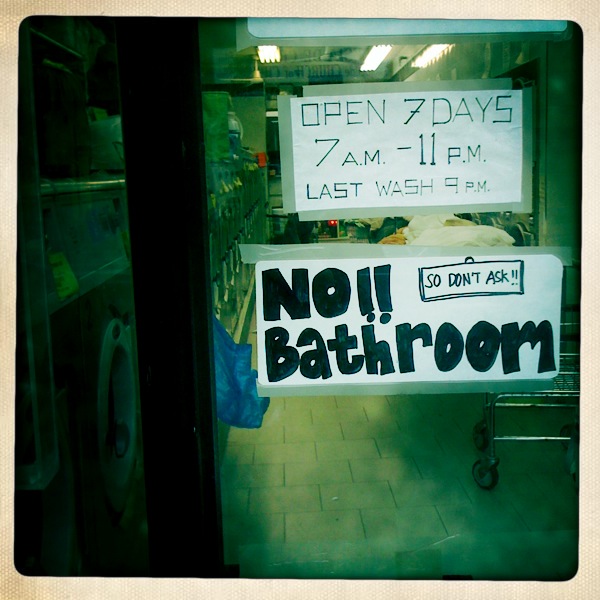 OPEN 7 DAYS
7 A.M. - 11 P.M.
LAST WASH 9 P.M.
NO!!
SO DON'T ASK!!
Bathroom